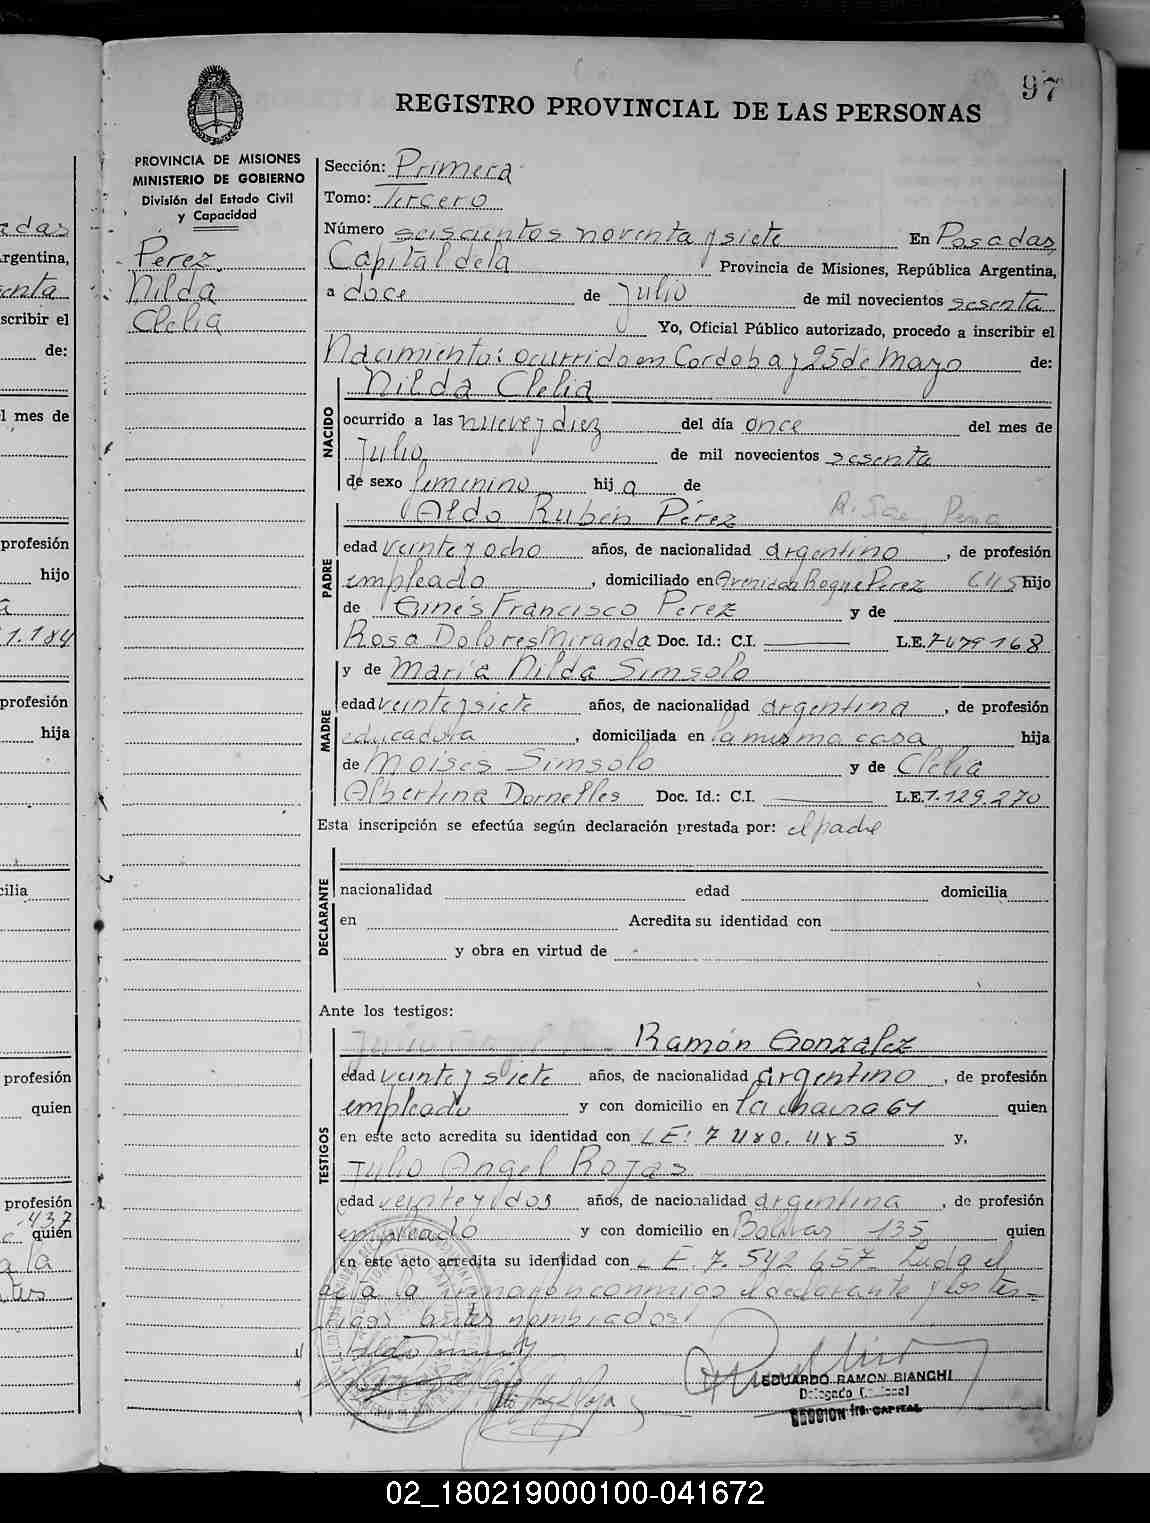 97
REGISTRO PROVINCIAL DE LAS PERSONAS
PROVINCIA DE MISIONES
MINISTERIO DE GOBIERNO
División del Estado Civil
y Capacidad
Pérez
Nilda
Clelia
Sección: Primera
Tomo: Tercero
Número seiscientos noventa y siete En Posadas,
Capital de la Provincia de Misiones, República Argentina,
a doce de Julio de mil novecientos sesenta
Yo, Oficial Público autorizado, procedo a inscribir el
Nacimiento: ocurrido en Cordoba y 25 de Mayo de:
Nilda Clelia
NACIDO
ocurrido a las nueve y diez del día once del mes de
Julio de mil novecientos sesenta
de sexo femenino hija de
Aldo Rubén Pérez
PADRE
edad veinte y ocho años, de nacionalidad argentino, de profesión
empleado, domiciliado en Avenida Roque Perez hijo
de Ginés Francisco Perez y de
Rosa Dolores Miranda Doc. Id.: C.I. L.E. 7479168
y de María Nilda Simsolo
MADRE
edad veinte y siete años, de nacionalidad argentina, de profesión
educadora, domiciliada en la misma casa hija
de Moisés Simsolo y de Clelia
Albertina Dornelles Doc. Id.: C.I. L.E. 1.129.270
Esta inscripción se efectúa según declaración prestada por: el padre
DECLARANTE
nacionalidad edad domicilia
en Acredita su identidad con
y obra en virtud de
Ante los testigos:
Ramón Gonzalez
TESTIGOS
edad veinte y siete años, de nacionalidad argentino, de profesión
empleado y con domicilio en la chacra 64 quien
en este acto acredita su identidad con LE: 7.480.485 y,
Julio Angel Rojas
edad veinte y dos años, de nacionalidad argentina, de profesión
empleado y con domicilio en Bolivar 135 quien
en este acto acredita su identidad con L E. 7.542.657. Leída el
acta la firman conmigo el declarante y los tes-
tigos antes nombrados.
EDUARDO RAMON BIANCHI
Delegado
SECCION 1ra. CAPITAL
02_180219000100-041672